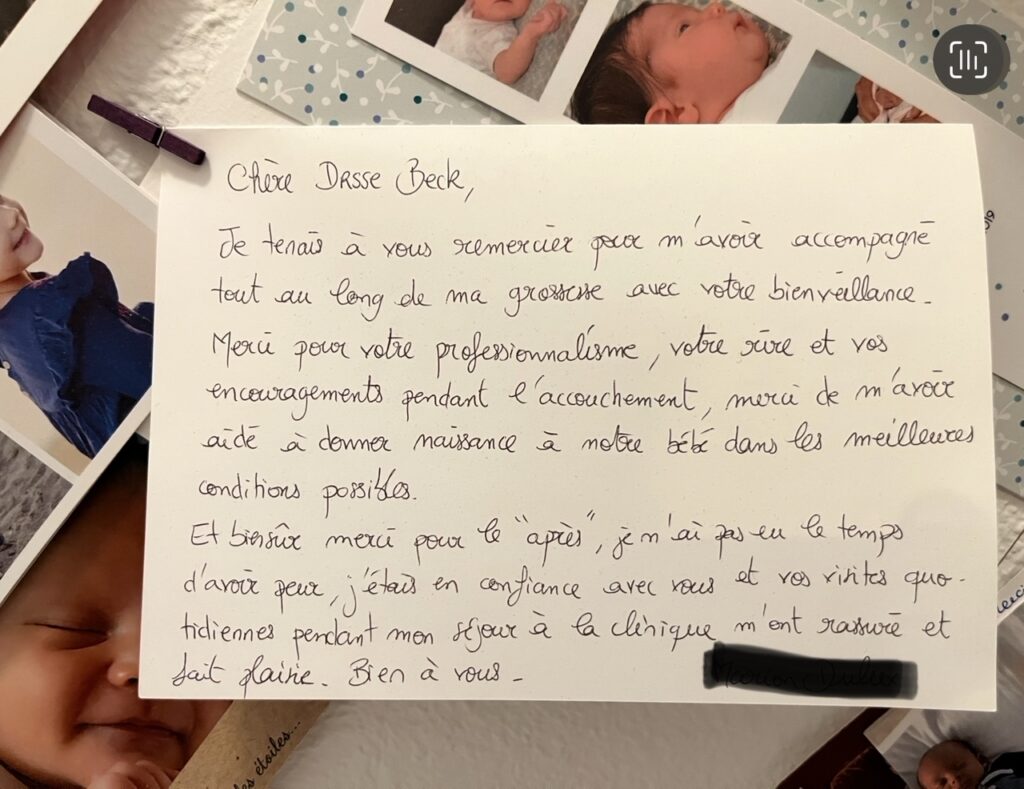 Chère Drsse Beck,
Je tenais à vous remercier pour m'avoir accompagné
tout au long de ma grossesse avec votre bienveillance.
Merci pour votre professionnalisme, votre rire et vos
encouragements pendant l'accouchement, merci de m'avoir
aidé à donner naissance à notre bébé dans les meilleures
conditions possibles.
Et biensûr merci pour le "après", je n'ai pas eu le temps
d'avoir peur, j'étais en confiance avec vous et vos visites quo-
tidiennes pendant mon séjour à la clinique m'ont rassuré et
fait plaisir. Bien à vous -
des étoiles...